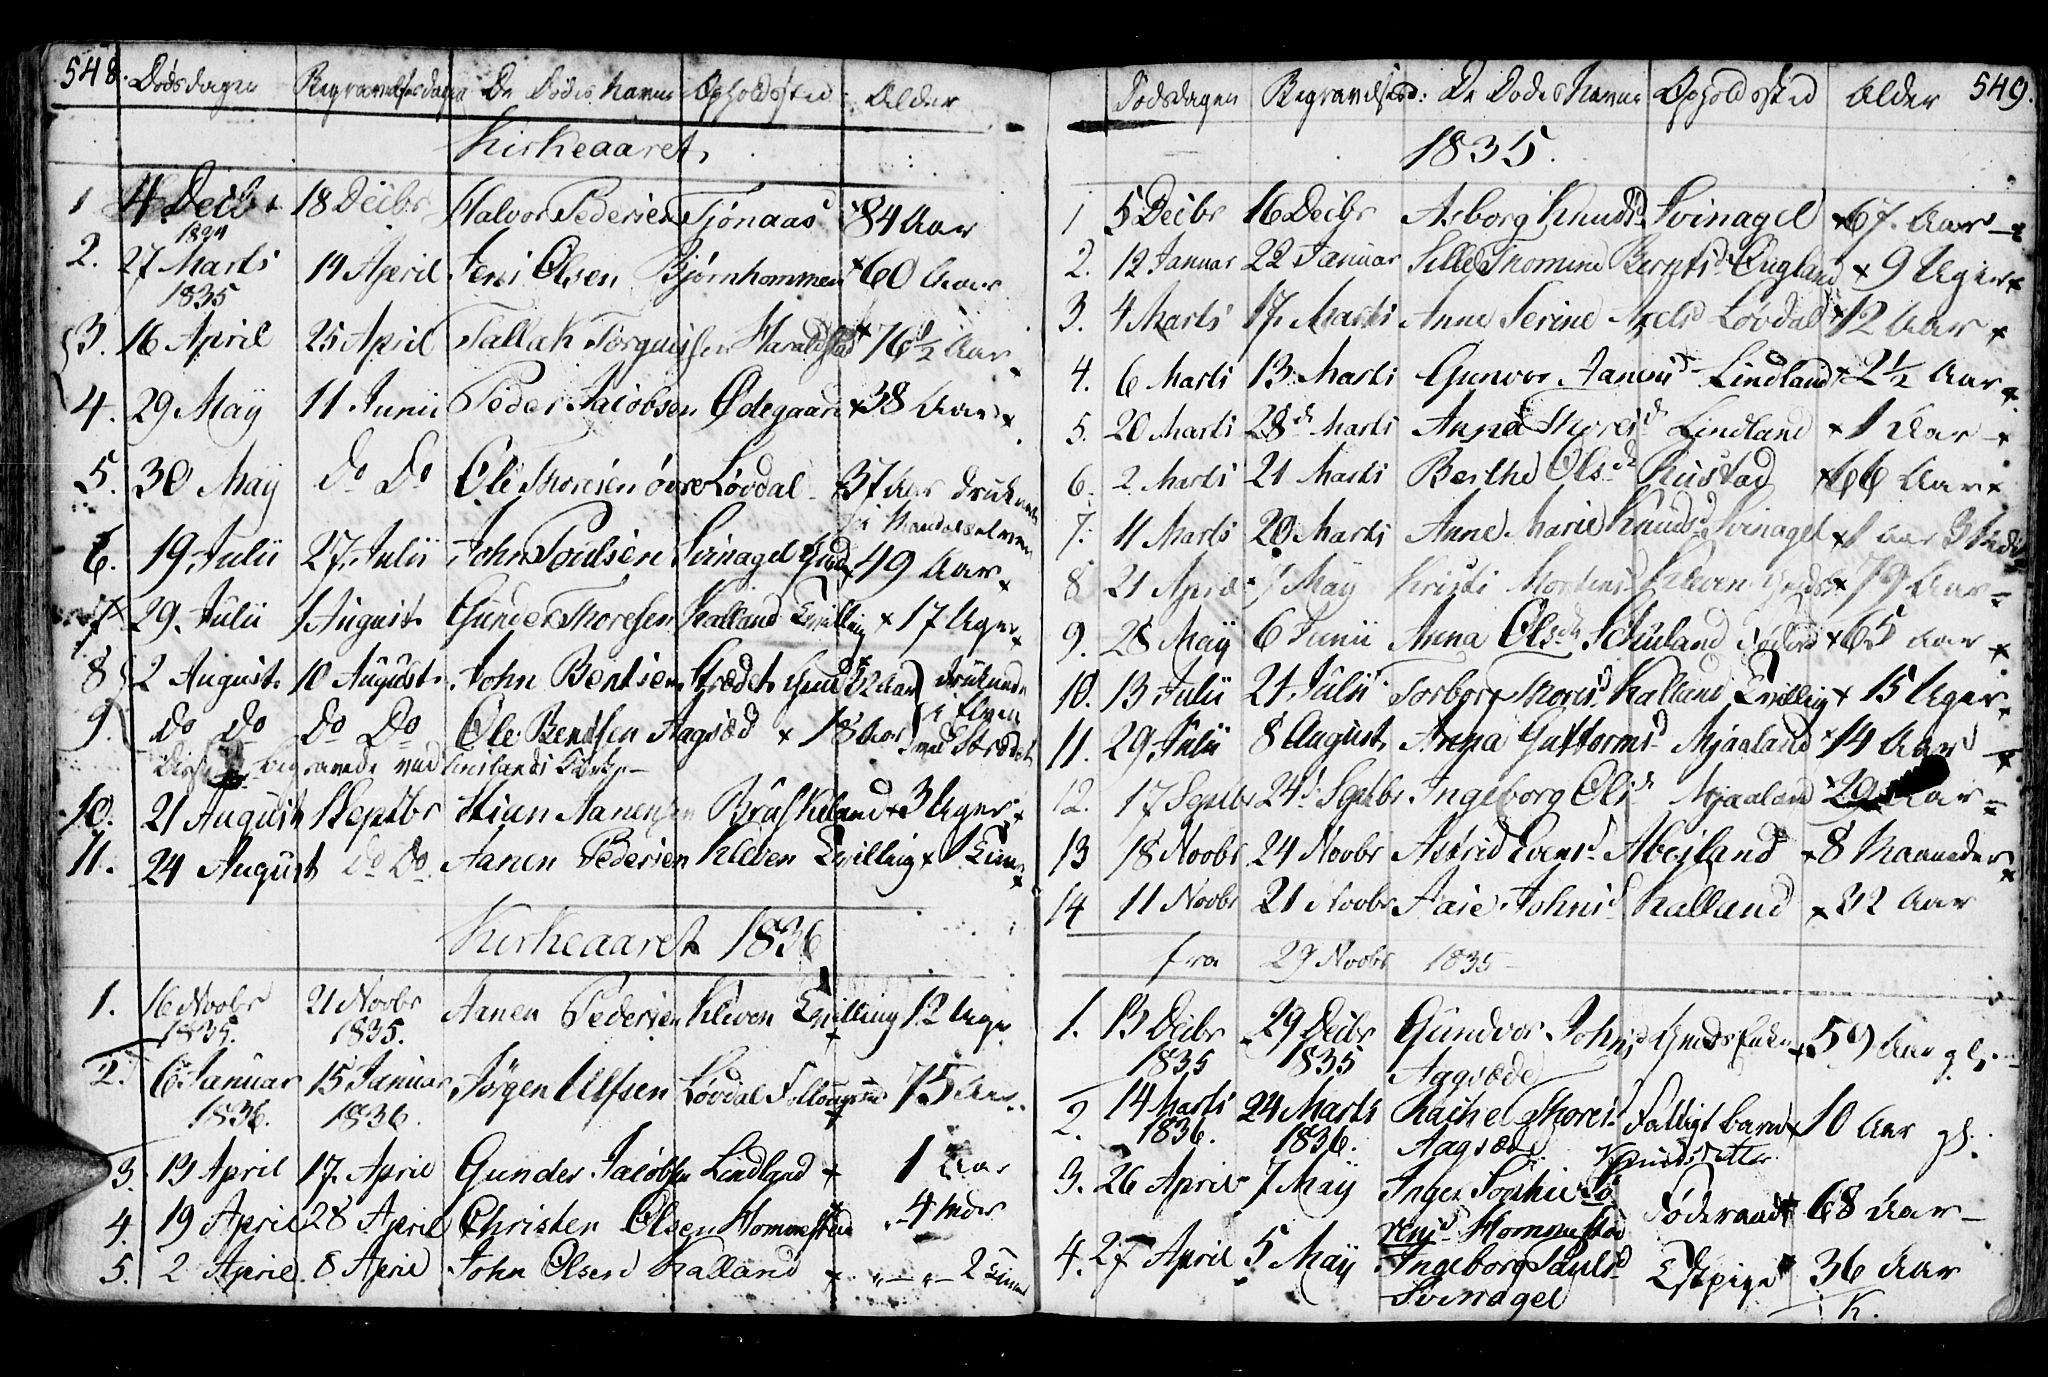 548. Dødsdagen Begravelsesdagen De Dødes Navne Opholdsted Alder
Kirkeaaret
1 4 Decbr 18 Decbr Halvor Pedersen Tjönaas 84 Aar
1834
2. 27 Marts 19 April Jens Olsen Bjørnhommen × 60 Aar
1835
3. 16 April 25 April Tallak Torguissen Haraldstad × 76 1/2 Aar
4. 29 Maÿ 11 Junii Peder Jacobsen Ødegaard × 38 Aar ×
5. 30 Maÿ Do Do Ole Thoresen övre Lövdal × 37 Aar druknede
i Mandalselven
6. 19 Julii 27 Julii John Poulsen Svinagel × 49 Aar ×
7 29. Julii 1 August Gunder Thoresen Kalland Tvilling × 17 Uger ×
8 2 August 10 August John Bentsen 22 Aar druknede
9. Do Do Do Do Ole Bentsen Aagsæd × 18 Aar i Elven
Disse begravede ved Kirke
10. 21 August Septbr Stian Aanensen Bruskeland × 3 Uger ×
11. 24 August Do Do Aanen Pedersen Kleven Tvilling × 1 ×
Kirkeaaret 1836
1. 16 Novbr 21 Novbr Aanen Pedersen Kleven Tvilling 12 Uger
1835. 1835.
2. 6 Januar 15 Januar Jörgen Ulfsen Lövdal 75 Aar
1836. 1836.
3. 13 April 17. April Gunder Jacobsen Lindland × 1 Aar
4. 19 April 28 April Christen Olsen Hommestad 4
5. 2 April 8 April John Olsen Kalland × 2
Dödsdagen Begravelsesd: De Dödes Navne Opholdsted Alder 549.
1835.
1 5 Decbr 16 Decbr Asborg Knudsd Svinagel × 67 Aar
2. 12 Januar 22 Januar Sille Thomine Berntsd Øugland × 9 Uger ×
3. 4 Marts 17. Marts Anne Serine Axelsd Lövdal × 12 Aar ×
4. 6 Marts 13. Marts Gunvor Aanensd Lindland × 2 1/2 Aar ×
5. 20 Marts 28de Marts Anna Thoresd Lindland × 1 Aar ×
6. 2 Marts 21 Marts Berthe Olsd Rustad × 66 Aar ×
7. 11 Marts 20 Marts Anne Marie Knudsd Svinagel × 1 Aar 3
8 21 April 7 Maÿ Kirsti Mortensd Kleven × 79 Aar
9. 28 Maÿ 6 Junii Anna Olsd × 65 Aar ×
10. 13 Julii 21 Julii Torbor Thoresd Kalland Tvilling × 15 Uger
11. 29 Julii 8 August Anna Guttormsd Mjaaland × 14 Aar ×
12. 17 Septbr 24 Septbr Ingeborg Olsd Mjaaland × 29 Aar
13 18 Novbr 24 Novbr Astrid Evensd Abesland × 8 Maaneder ×
14 11 Novbr 21 Novbr Aase Johnsd Kalland × 22 Aar
fra 29 Novbr 1835
1. 13 Decbr 29 Decbr Gundvor Johnsd × 59 Aar gl.
1835 1835 Aagsæde
2. 14 Marts 24 Marts Rachel Thoresd Fattigt barn × 10 Aar gl.
1836. 1836. Aagsæd
3. 26 April 7 Maÿ Inger Sophie Födoraad × 68 Aar
Hommestad
4. 27 April 5 Maÿ Ingeborg Paulsd 36 Aar
Svinagel K.